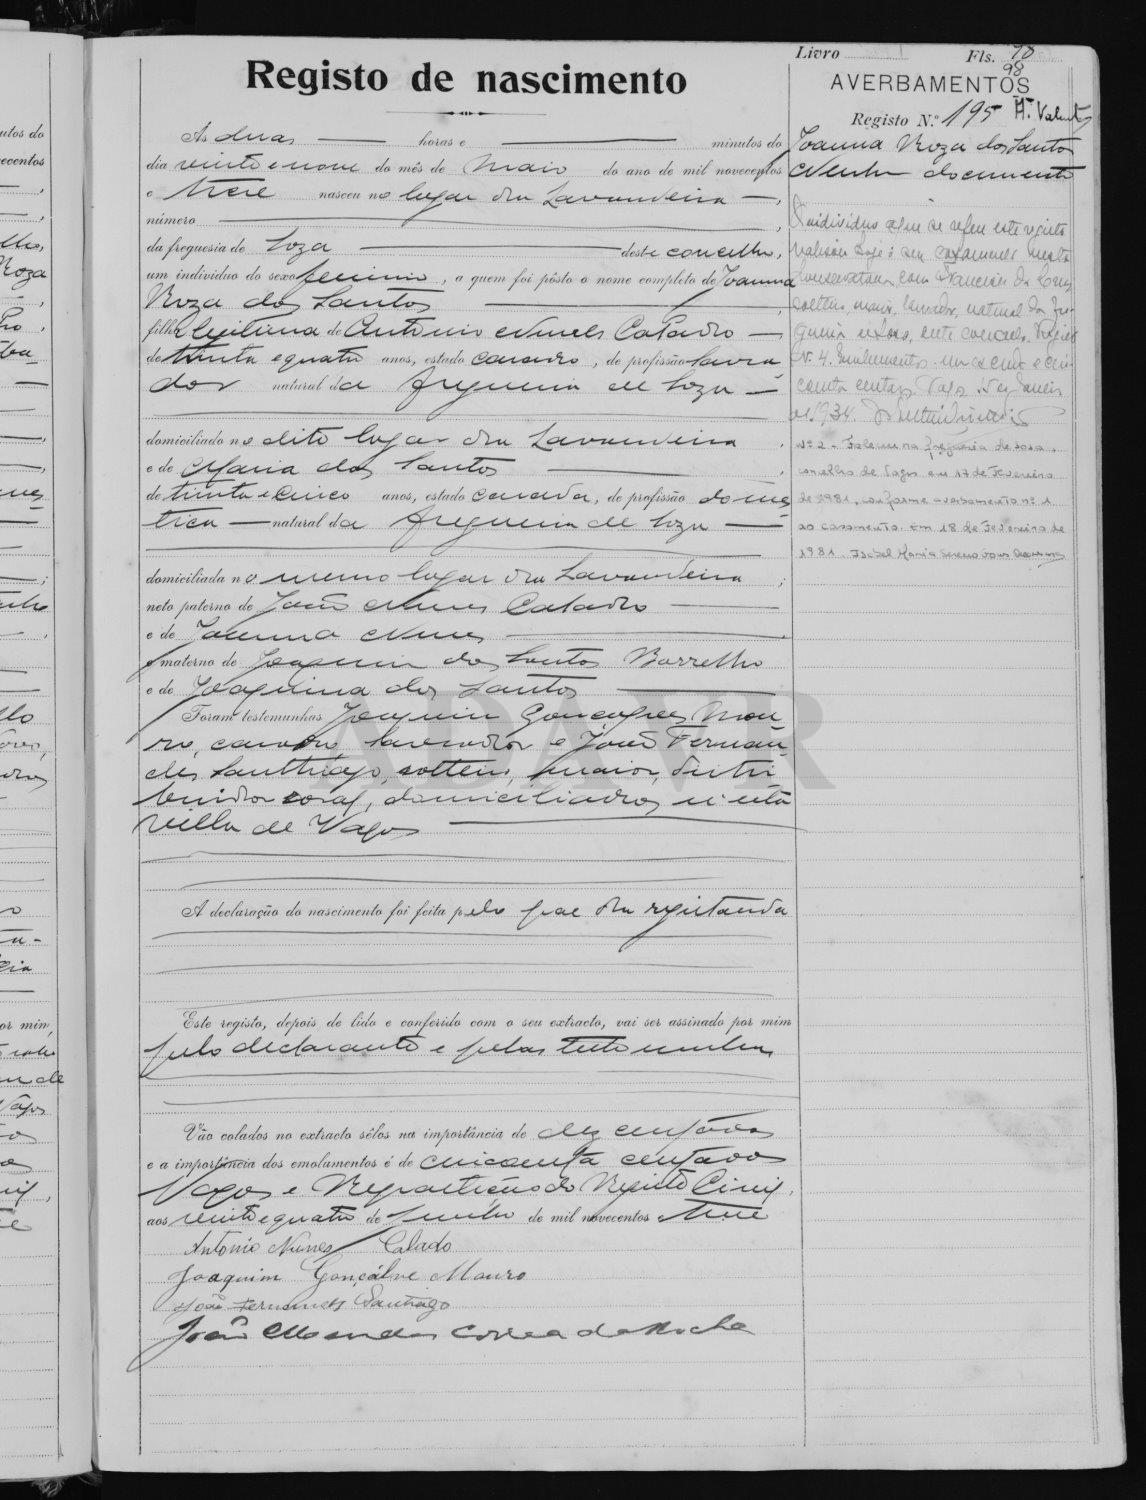 Livro Fls. 98
98
Registo de nascimento
AVERBAMENTOS
Registo N.º 195
Joanna Roza dos Santos
documento
O individuo a que se refere este registo
realisou hoje o seu casamento nesta
Conservatoria com Francisco da Cruz
solteiro, maior, lavrador, natural da fre-
guesia de Soza, deste concelho. Registo
Nº 4. Emolumentos um escudo e cin-
coenta centavos. Vagos, de Janeiro
de 1934.
Nº 2 - Faleceu na freguesia de Soza,
concelho de Vagos em 17 de Fevereiro
de 1981, conforme averbamento nº 1
ao casamento. Em 18 de Fevereiro de
1981. Isabel Maria
Ás duas horas e minutos do
dia vinte e nove do mês de Maio do ano de mil novecentos
e treze nasceu no lugar da Lavandeira,
número
da freguesia de Soza deste concelho,
um indivíduo do sexo feminino, a quem foi pôsto o nome completo de Joanna
Roza dos Santos
filha legitima de Antonio Nunes Calado
de trinta e quatro anos, estado casado, de profissão lavra-
dor natural da freguesia de Soza
domiciliado no dito lugar da Lavandeira
e de Maria dos Santos
de trinta e cinco anos, estado casada, de profissão domes-
tica natural da freguesia de Soza
domiciliada no mesmo lugar da Lavandeira;
neto paterno de João Nunes Calado
e de Joanna Nunes
e materno de Joaquim dos Santos Barrelho
e de Joaquina dos Santos
Foram testemunhas Joaquim Gonçalves Mou-
ro, casado, lavrador e João Fernan-
des Santhiago, solteiro, maior, distri-
buidor rural, domiciliados n'esta
villa de Vagos
A declaração do nascimento foi feita pelo pae da registanda
Este registo, depois de lido e conferido com o seu extracto, vai ser assinado por mim
pelo declarante e pelas testemunhas
Vão colados no extracto sêlos na importância de dez centavos
e a importância dos emolumentos é de cincoenta centavos
Vagos e Repartição do Registo Civil,
aos vinte e quatro de Junho de mil novecentos e treze
Antonio Nunes Calado
Joaquim Gonçálve Mouro
João Fernandes Santiago
João Mendes Correa da Rocha
ADAVR